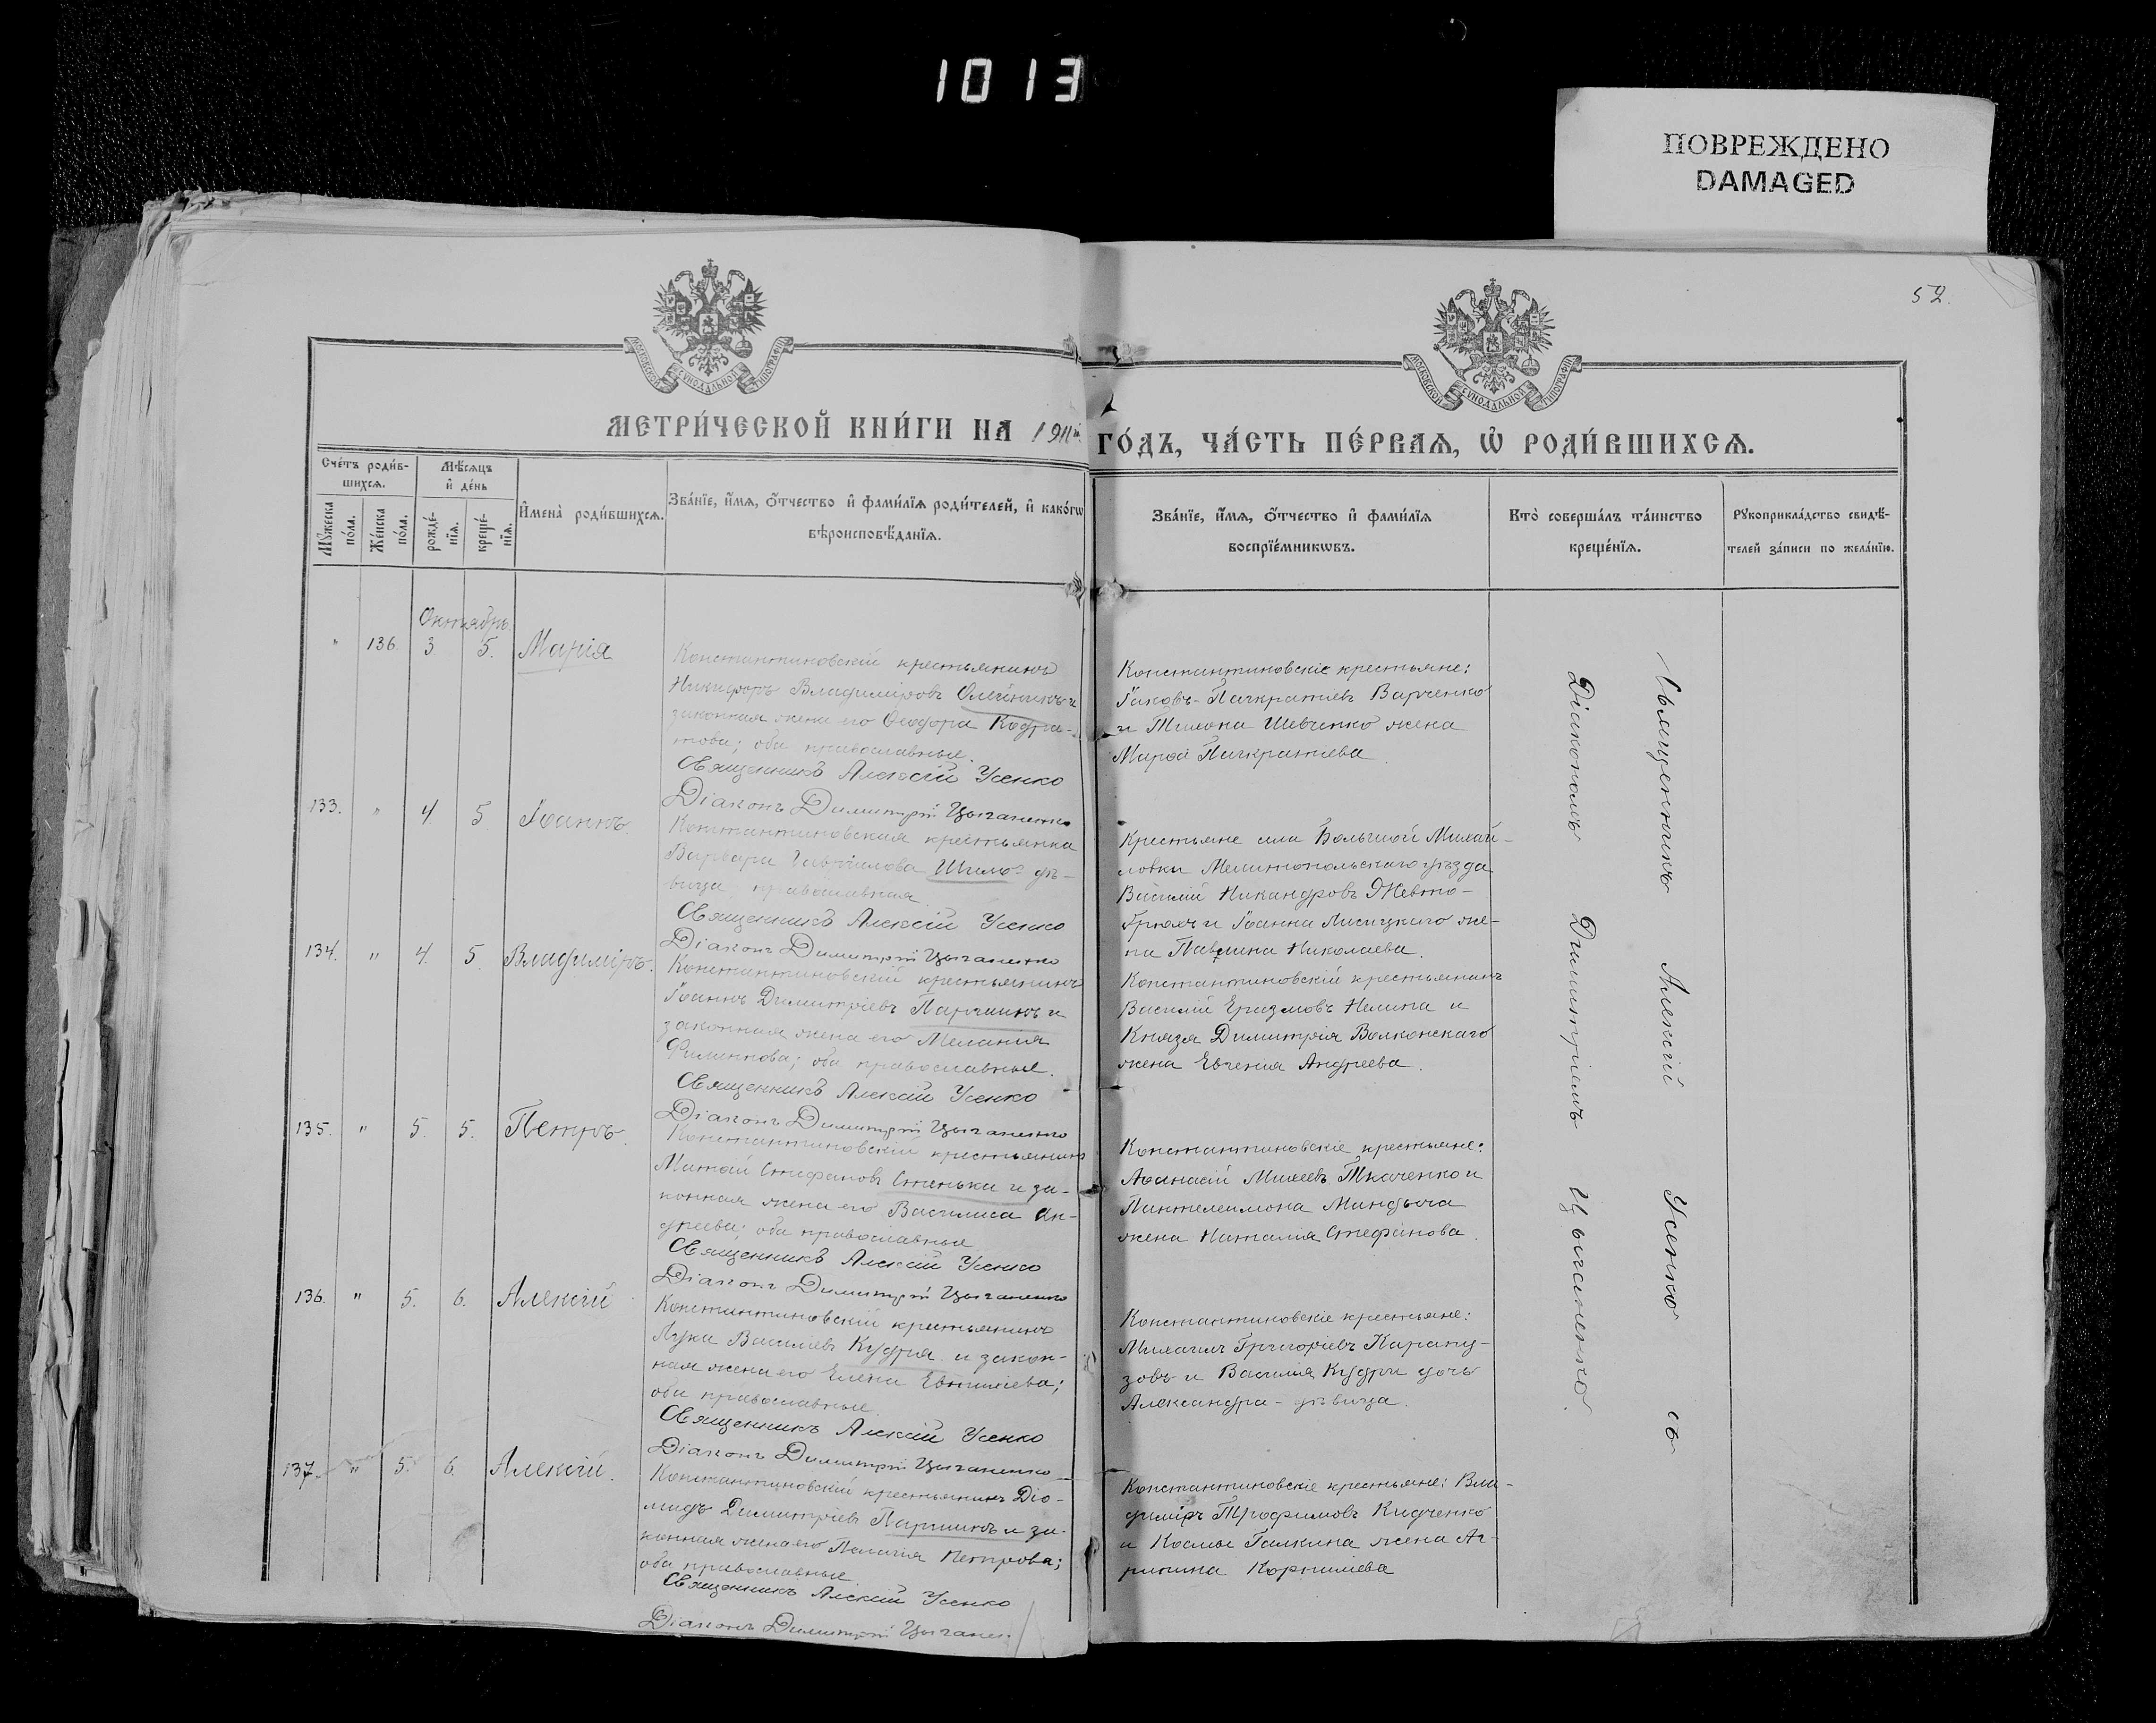 1013
ПОВРЕЖДЕНО
DAMAGED
52.
МОСКОВСКОЙ СѴНОДАЛЬНОЙ ТИПОГРАФІИ
МОСКОВСКОЙ СѴНОДАЛЬНОЙ ТИПОГРАФІИ
МЕТРИ́ЧЕСКОЙ КНИ́ГИ НА 1911й ГО́ДЪ, ЧА́СТЬ ПЕ́РВАѦ, Ѡ РОДИ́ВШИХСѦ.
Сче́тъ роди́в-
шихсѧ.
Мѣ́сѧцъ
и҆ де́нь
Мꙋ́жеска
по́ла.
Же́нска
по́ла.
рожде́-
нїѧ.
креще́-
нїѧ.
И҆мена̀ роди́вшихсѧ.
Зва́нїе, и҆́мѧ, ѻ҆́тчество и҆ фами́лїѧ роди́телей, и҆ како́гѡ
вѣроисповѣ́данїѧ.
Зва́нїе, и҆́мѧ, ѻ҆́тчество и҆ фами́лїѧ
воспрїе́мникѡвъ.
Кто̀ соверша́лъ та́инство
креще́нїѧ.
Рꙋкоприкла́дство свидѣ́-
телей за́писи по жела́нїю.
Октябрь.
" 136. 3. 5. Марія
Константиновскій крестьянинъ
Никифоръ Владиміровъ Олейникъ и
законная жена его Ѳеодора Кодра-
това; оба православные.
Священникъ Алексій Усенко
Діаконъ Димитрій Цыганенко
Константиновскіе крестьяне:
Іаковъ Панкратіевъ Варченко
и Тихона Шевченко жена
Марѳа Панкратіева.
133. " 4 5 Іоаннъ.
Константиновская крестьянка
Варвара Гавріилова Шило дѣ-
вица, православная.
Священникъ Алексій Усенко
Діаконъ Димитрій Цыганенко
Крестьяне села Большой Михай-
ловки Мелитопольскаго уѣзда
Василій Никандровъ Жевто-
и Іоанна Лисицкаго же-
на Павлина Николаева.
134. " 4. 5. Владиміръ.
Константиновскій крестьянинъ
Іоаннъ Димитріевъ Паршинъ и
законная жена его Меланія
Филиппова; оба православные.
Священникъ Алексій Усенко
Діаконъ Димитрій Цыганенко
Константиновскій крестьянинъ
Василій Еразмовъ Нелипа и
Князя Димитрія Волконскаго
жена Евгенія Андреева.
135. " 5. 5. Петръ.
Константиновскій крестьянинъ
Матѳій Стефановъ Стенька и за-
конная жена его Василиса Ан-
дреева; оба православные
Священникъ Алексій Усенко
Діаконъ Димитрій Цыганенко
Константиновскіе крестьяне:
Аѳанасій Михеевъ Ткаченко и
Пантелеимона
жена Наталія Стефанова.
136. " 5. 6. Алексій
Константиновскій крестьянинъ
Лука Василіевъ Кудря и закон-
ная жена его Елена Евѳиміева;
оба православные.
Священникъ Алексій Усенко
Діаконъ Димитрій Цыганенко
Константиновскіе крестьяне:
Михаилъ Григоріевъ Карагу-
зовъ и Василія Кудри дочь
Александра - дѣвица.
137. " 5. 6. Алексій.
Константиновскій крестьянинъ Діо-
мидъ Димитріевъ Паршинъ и за-
конная жена его Пелагія Петрова;
оба православные
Священникъ Алексій Усенко
Діаконъ Димитрій Цыганен.
Константиновскіе крестьяне: Вла-
диміръ Трофимовъ Кидченко
и Космы Галкина жена Аг-
рипина Корнилева
Священникъ Алексій Усенко съ
Діакономъ Димитріемъ Цыганенко.